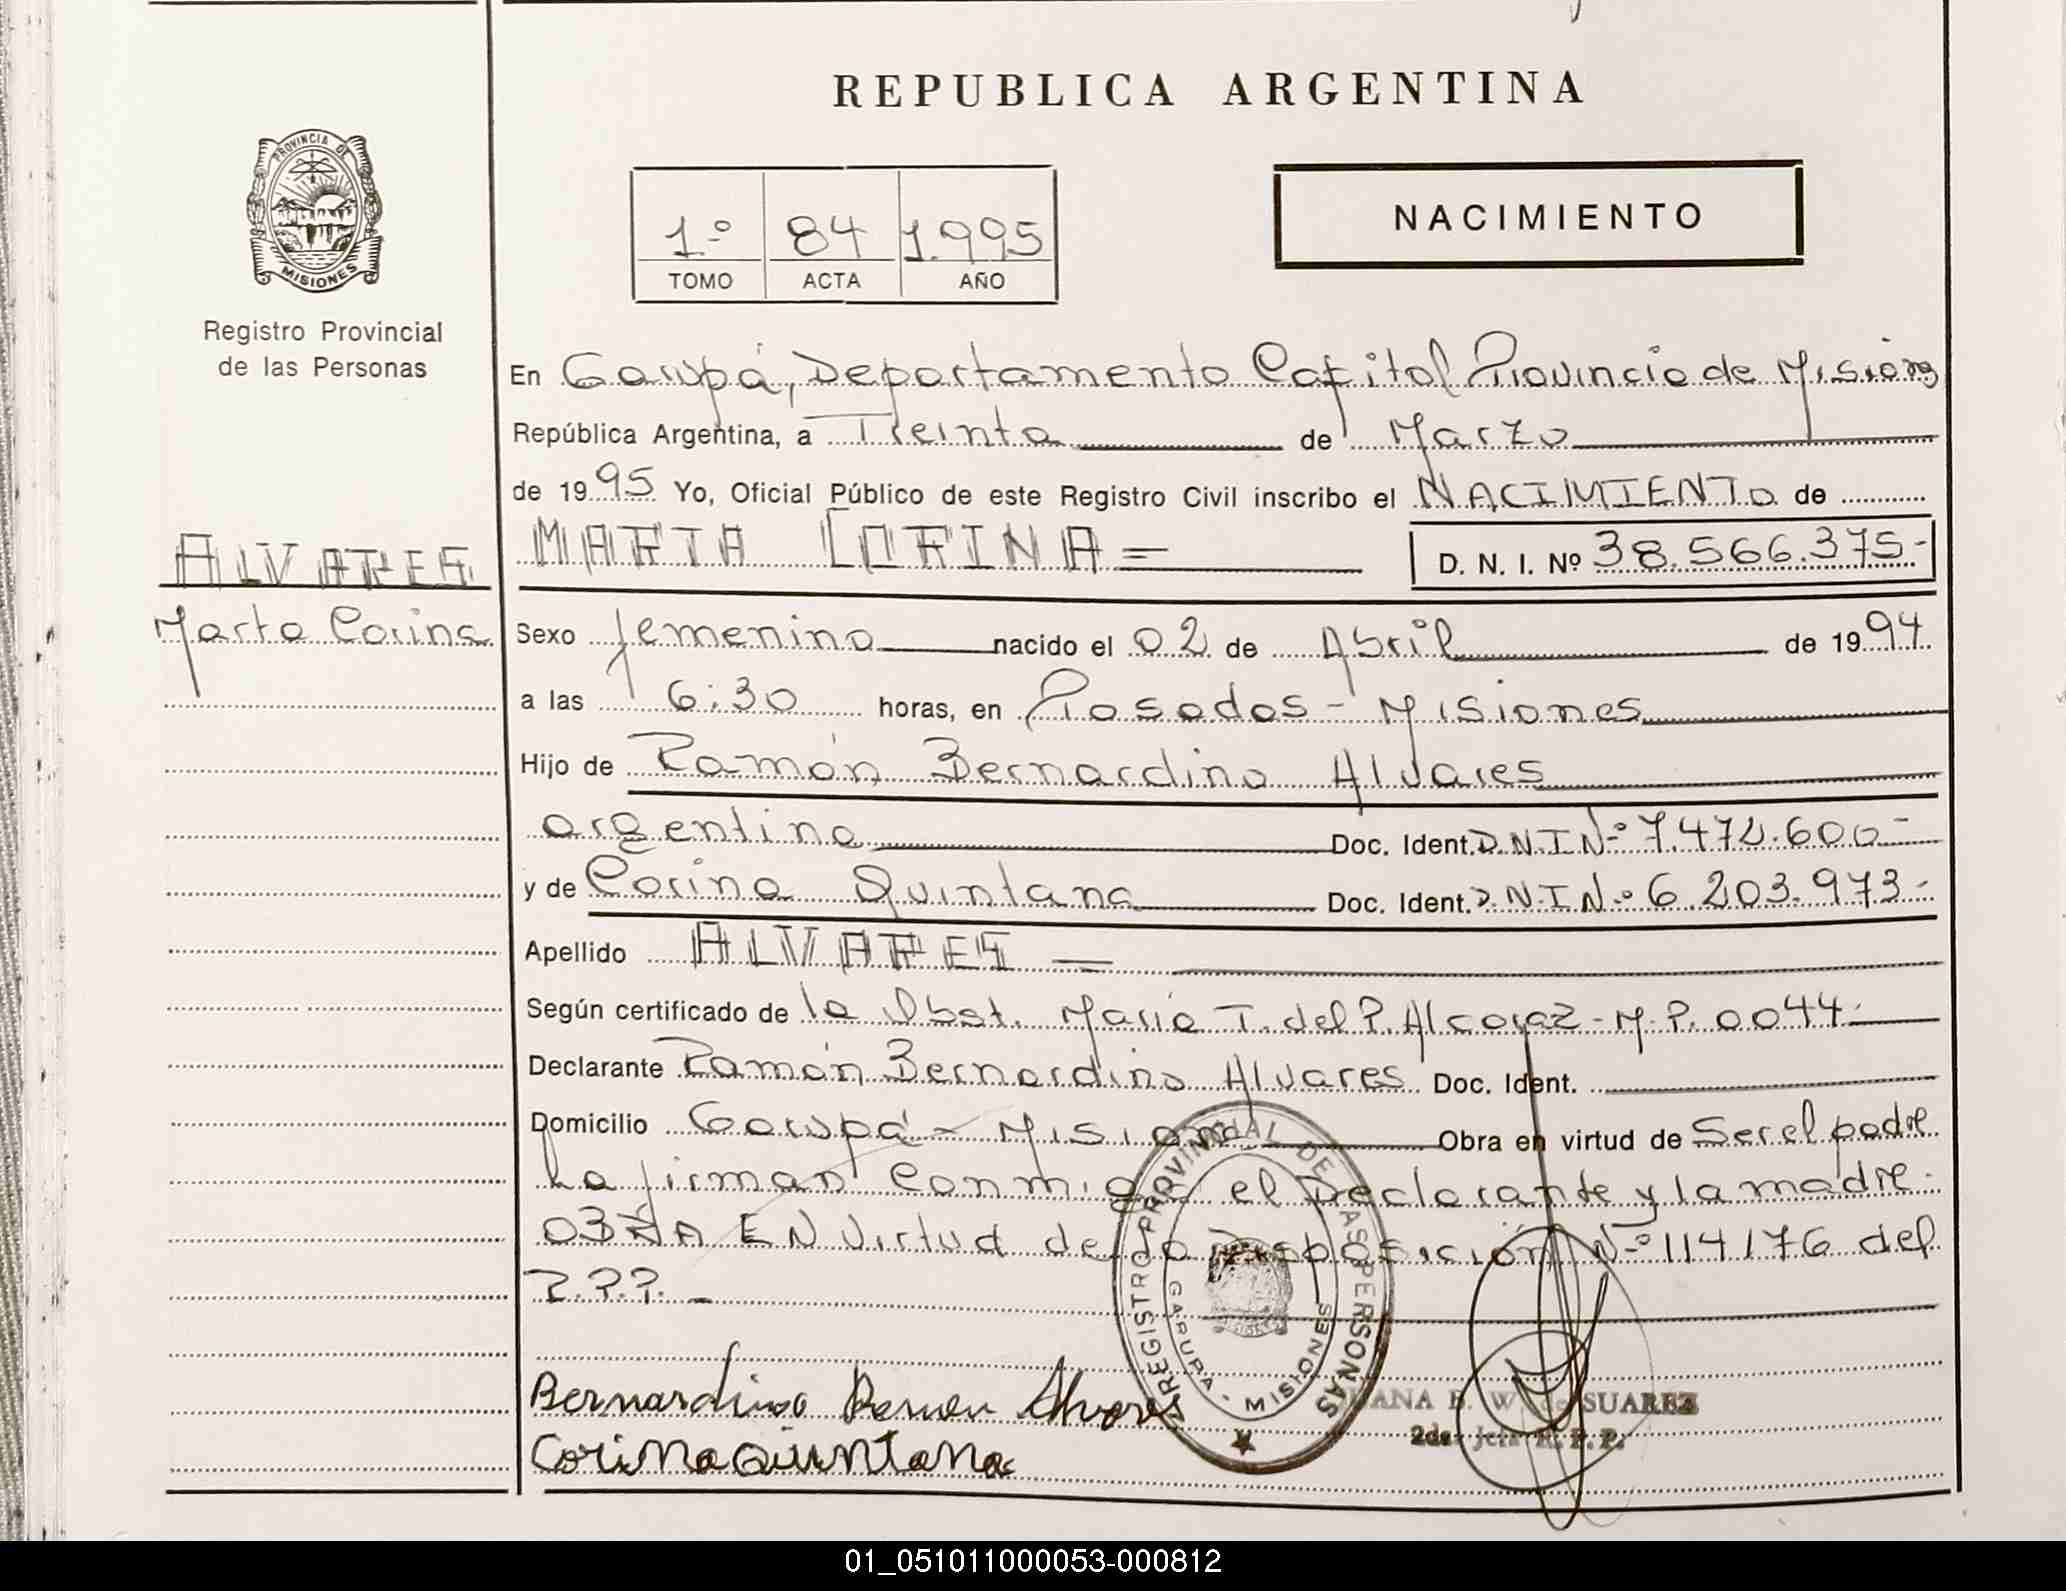 REPUBLICA ARGENTINA
PROVINCIA DE
MISIONES
Registro Provincial
de las Personas
1º 84 1.995
TOMO ACTA AÑO
NACIMIENTO
En Garupá, Departamento Capital Provincia de Misiones
República Argentina, a Treinta de Marzo
de 1995 Yo, Oficial Público de este Registro Civil inscribo el NACIMIENTO de
ALVARES
MARTA CORINA =
D. N. I. Nº 38.566.375.-
Marta Corina
Sexo femenino nacido el 02 de Abril de 1994
a las 6:30 horas, en Posadas - Misiones
Hijo de Ramón Bernardino Alvares
argentino Doc. Ident. D.N.I Nº 7.472.600-
y de Corina Quintana Doc. Ident. D.N.I Nº 6.203.973.-
Apellido ALVARES —
Según certificado de la Obst. María T. del P. Alcaraz - M.P. 0044.-
Declarante Ramón Bernardino Alvares Doc. Ident.
Domicilio Garupá - Misiones Obra en virtud de Ser el padre
La firman Conmigo el Declarante y la madre.
OBRA EN Virtud de la Disposición Nº 114/76 del
R.P.P. -
Bernardino Ramon Alvares
Corina Quintana
REGISTRO PROVINCIAL DE LAS PERSONAS
GARUPA - MISIONES
JUANA B. W. de SUAREZ
2da. Jefa R.P.P.
01_051011000053-000812